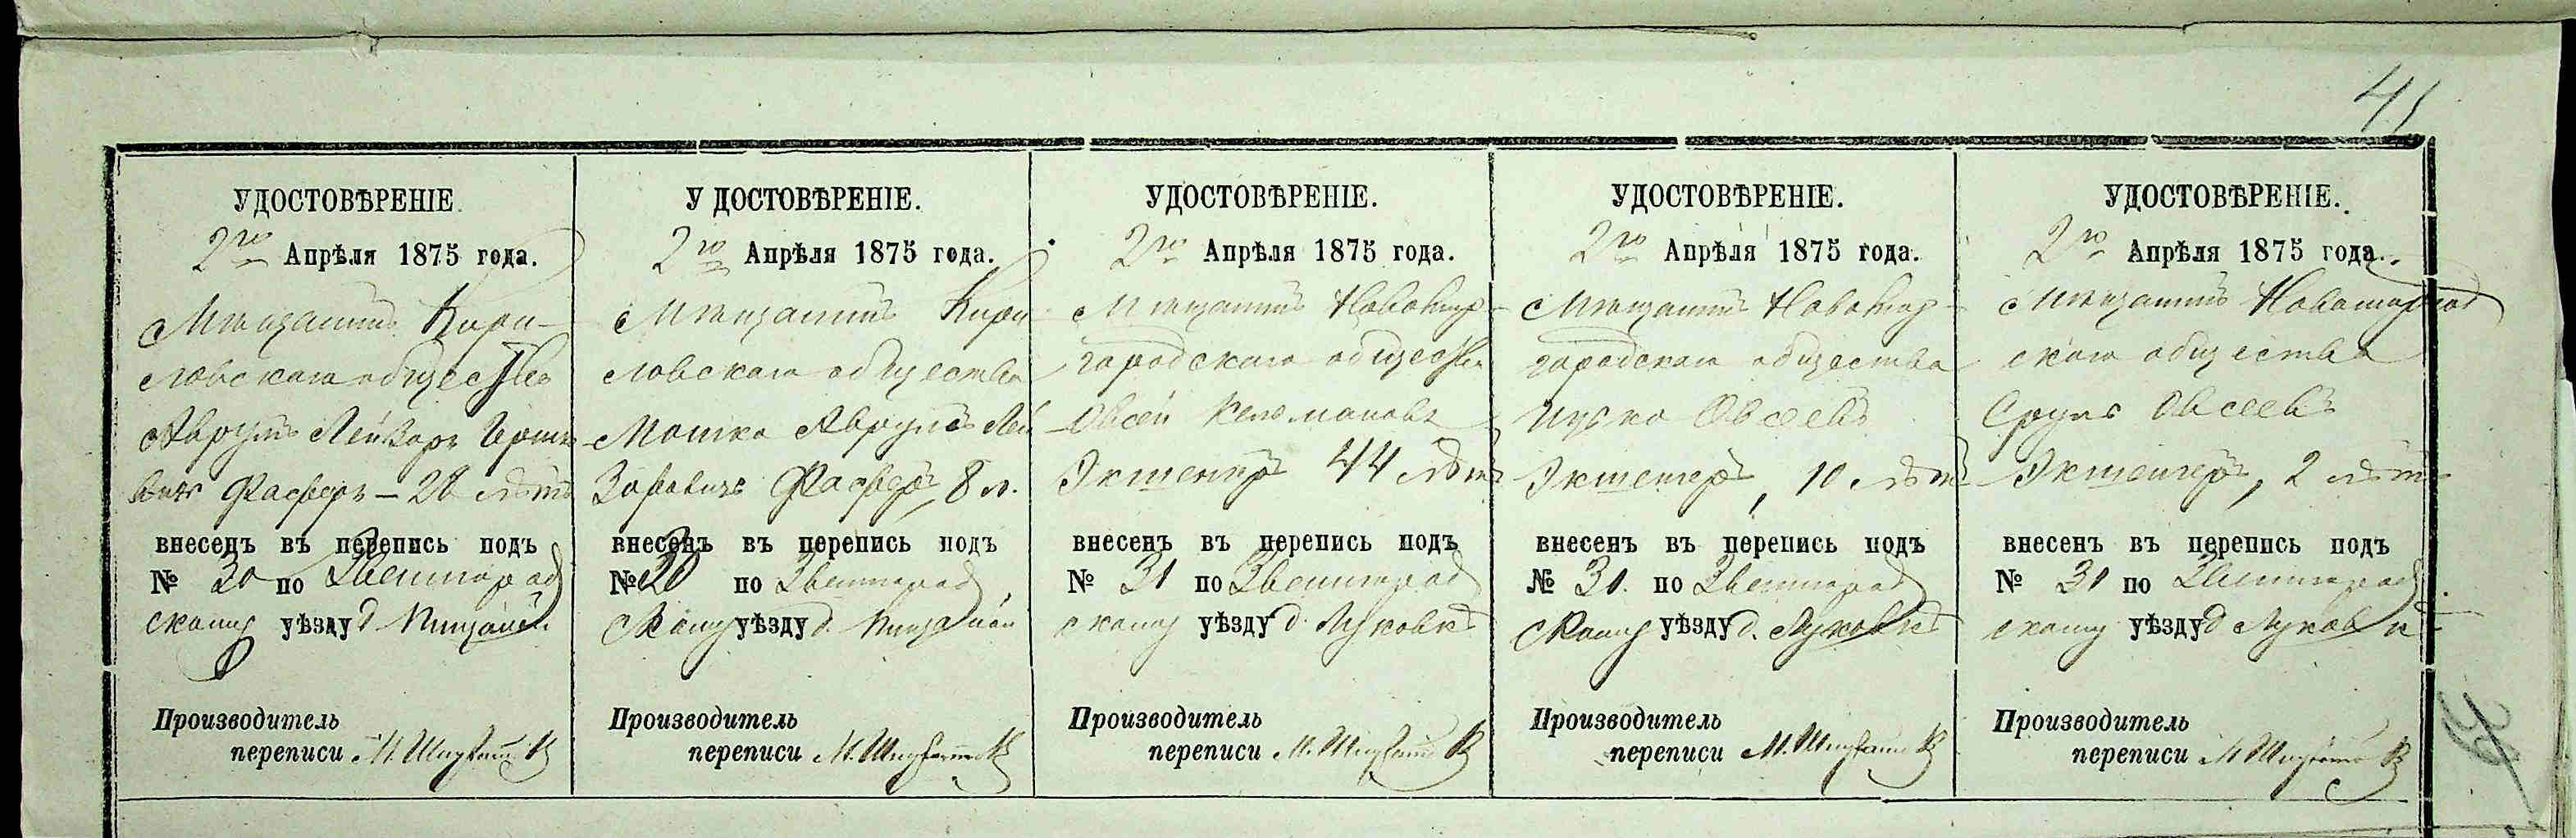 41
УДОСТОВѢРЕНІЕ.
2го Апрѣля 1875 года.
Мѣщанинъ Кири-
ловскаго общества
Аврумъ Лейзоръ Иршко
вичъ Фасферъ – 28 лѣтъ
внесенъ въ перепись подъ
№ 30 по Звенигород
скому уѣзду д.
Производитель
переписи М.
УДОСТОВѢРЕНІЕ.
2го Апрѣля 1875 года.
Мѣщанинъ Кири
ловскаго общества
Мошко Аврумъ Лей
зоровичъ Фасферъ, 8 л.
внесенъ въ перепись подъ
№ 30 по Звенигород
скому уѣзду д.
Производитель
переписи М.
УДОСТОВѢРЕНІЕ.
2го Апрѣля 1875 года.
Мѣщанинъ Новомир-
городскаго общества
Овсей Кельмановъ
Экштейнъ 44 лѣтъ
внесенъ въ перепись подъ
№ 31 по Звенигород
скому уѣзду д. Луковкѣ
Производитель
переписи М.
УДОСТОВѢРЕНІЕ.
2го Апрѣля 1875 года.
Мѣщанинъ Новомир-
городскаго общества
Ицько Овсеевъ
10 лѣтъ
внесенъ въ перепись подъ
№ 31. по Звенигород
скому уѣзду д. Луковкѣ
Производитель
переписи М.
УДОСТОВѢРЕНІЕ.
2го Апрѣля 1875 года.
Мѣщанинъ Новомиргород
скаго общества
Сруль Овсеевъ
2 лѣтъ
внесенъ въ перепись подъ
№ 31 по Звенигород
скому уѣзду д Луковкѣ
Производитель
переписи М.